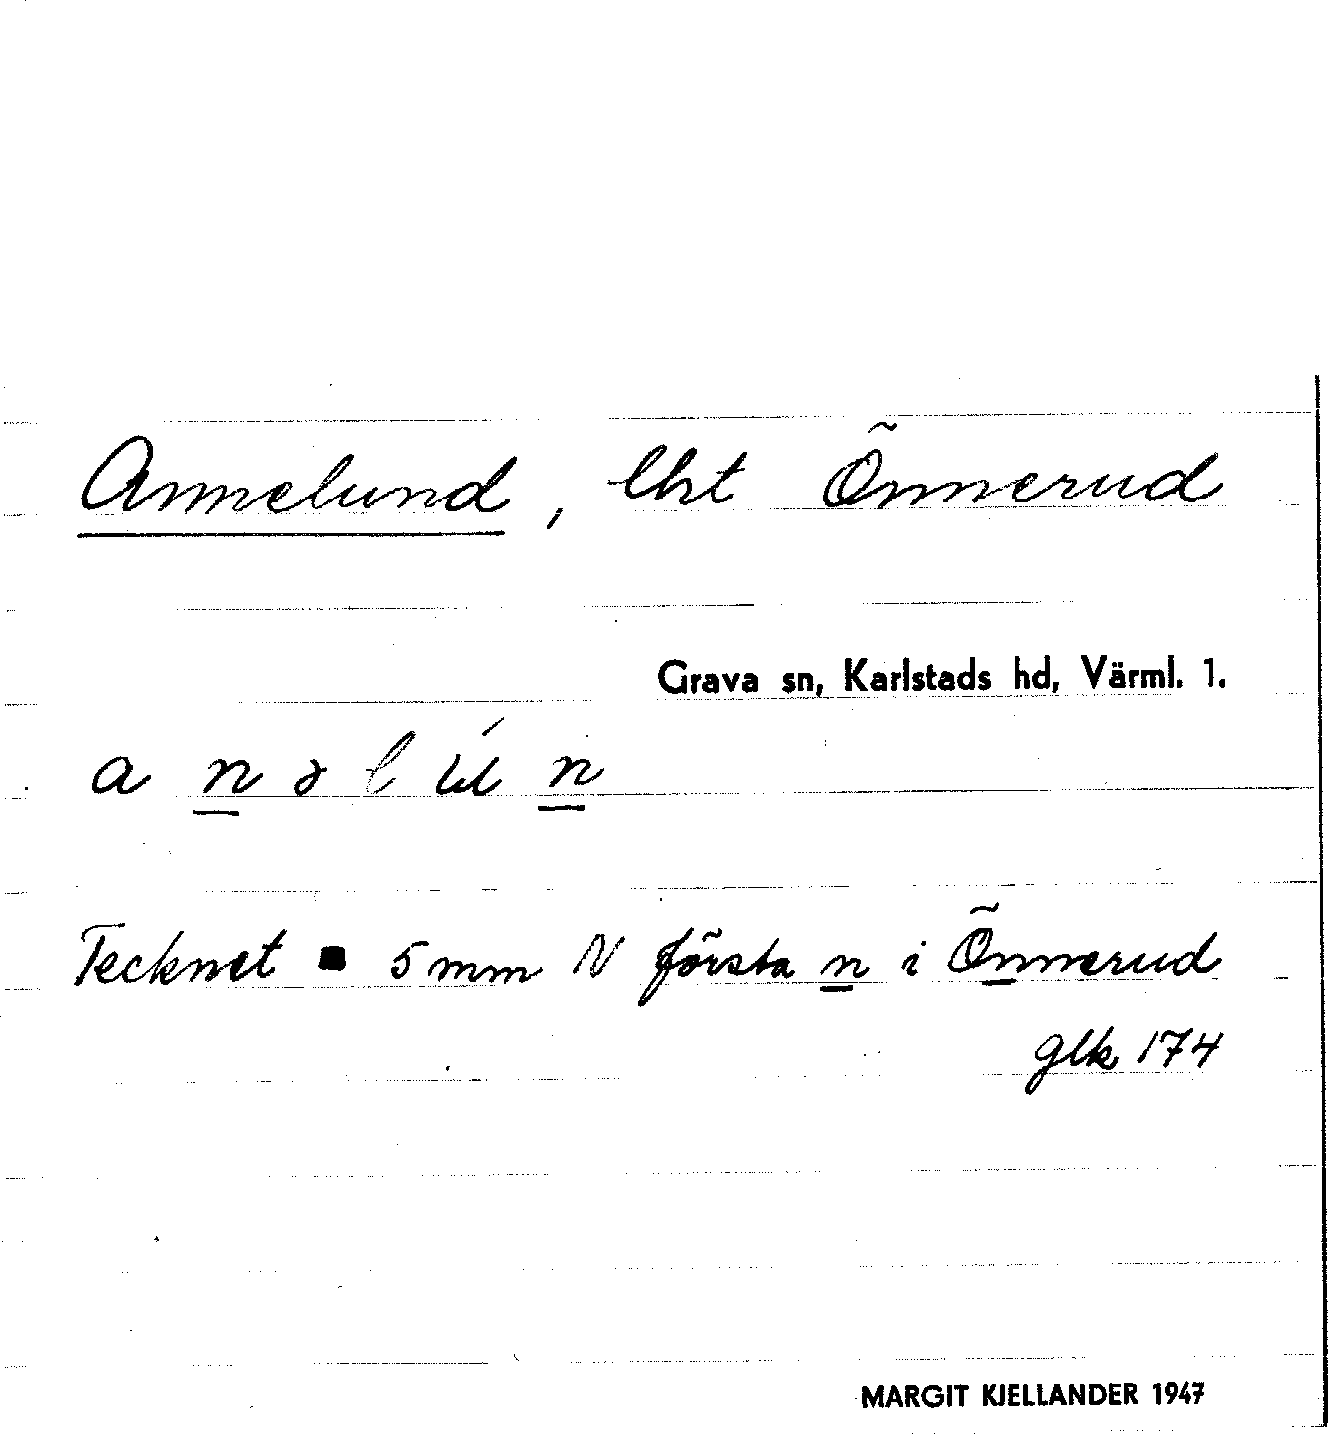 Annelund, lht Önnerud
Grava sn, Karlstads hd, Värml. 1.
a n ə l ú n
Tecknet ■ 5 mm N första n i Önnerud
glk 174
MARGIT KJELLANDER 1947